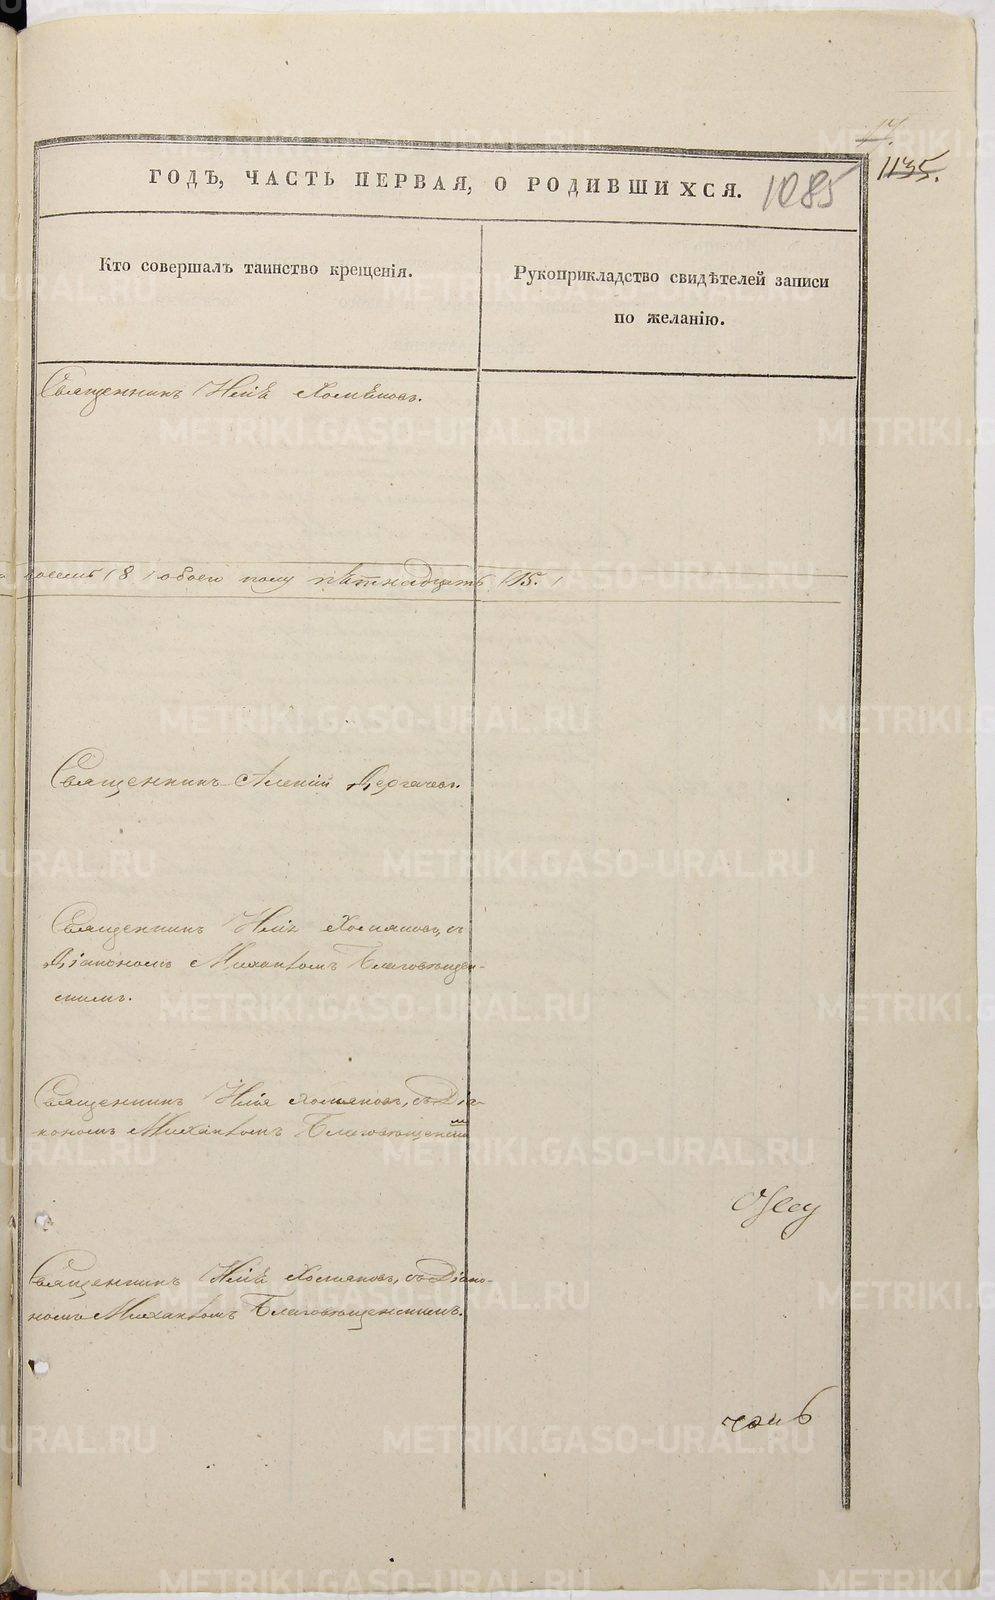 14.
1135.
ГОДЪ, ЧАСТЬ ПЕРВАЯ, О РОДИВШИХСЯ. 1085
Кто совершалъ таинство крещенія.
Рукоприкладство свидѣтелей записи
по желанію.
Священникъ Илія Хомяковъ.
восемь (8) обоего полу пятнадцать (15.)
Священникъ Алексій Дергачевъ.
Священникъ Илія Хомяковъ, съ
Діакономъ Михаиломъ Благовѣщен-
скимъ.
Священникъ Илія Хомяковъ, съ Діа-
кономъ Михаиломъ Благовѣщенскимъ
Священникъ Илія Хомяковъ, съ Діако-
номъ Михаиломъ Благовѣщенскимъ.
METRIKI.GASO-URAL.RU